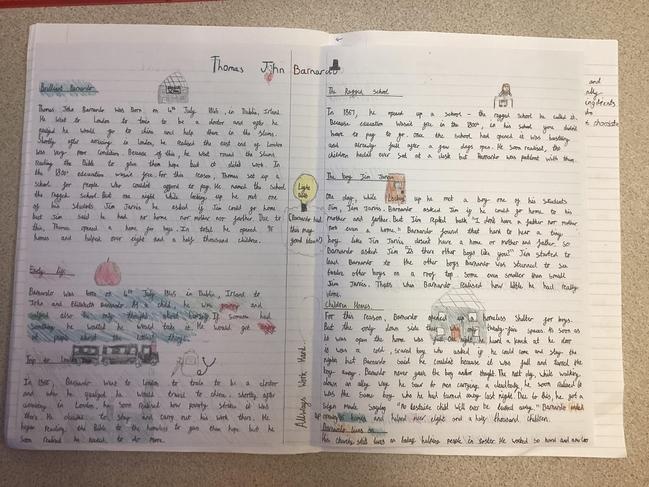 Thomas John Barnardo
Brilliant Barnardo
Thomas John Barnardo was Born on 4th July 1845, in Dublin, Irland.
He Went to London to train to be a doctor and after he
he would go to china and help there in the slums.
Shortly after arriving in London, he realised the east end of London
was very poor condition. Because of this, he went round the slums
reading the Bible to give them hope but it didnt work. In
the 1800s education wasnt free. For this reason, Thomas set up a
School for people who couldnt afford to pay. He named the School
the ragged School. But one night while locking up he met one
of his students Jim Jarvis he asked if Jim could go home
but Jim said he had no home nor mother nor farther. Due to
this, Thomas opened a home for boys. In total he opened 96
homes and helped over eight and a half thousand children.
Early life
Barnardo was born on 4th July 1845 in Dublin, Irland to
John and Elizabeth Barnardo. As a child he was
and
also only thought about himself. If someone had
something he wanted he would take it. He would get
at people about things.
Trip to London
In 1866, Barnardo went to London to train to be a doctor
and when he qualified he would travel to china. Shortly after
arriving in London, he soon realised how poverty striken it was
there. He decided to stay and carry out his work there. He
began reading the Bible to the homeless to give them hope but he
soon realised he needed to do more.
Light
Bulb
(Barnardo had
this many
good ideas!)
Allways Work Hard.
The Ragged School
In 1867, he opened up a school - the ragged school he called it.
Because education wasnt free in the 1800s in his school you didnt
have to pay to go. Once the school had opened it was bustling
and already full after a few days open. He soon realised, the
children hadnt ever sat at a desk but Barnardo was patient with them.
The boy Jim Jarvis
One day, while locking up he met a boy - one of his students
Jim, Jim Jarvis. Barnardo asked Jim if he could go home to his
mother and farther. But Jim replied back "I dont have a father nor mother
not even a home." Barnardo found that hard to hear a tiny
boy like Jim Jarvis, doesnt have a home or mother and farther. So
Barnardo asked Jim "Is there other boys like you?" Jim started to
lead Barnardo to the other boys. Barnardo was stunned to see
twelve other boys on a roof top. Some even smaller than small
Jim Jarvis. Thats when Barnardo realised how little he had really
done.
Children Homes.
For this reason, Barnardo opened a homeless Shelter for boys.
But the only down side they only twenty-five spaces. As soon as
it was open the home was full. One night, he heard a knock at the door
it was a cold, scared boy who asked if he could come and stay the
night but Barnardo said he couldnt because it was full and turned the
boy away. Barnardo never gave the boy another thought. The next day, while walking
down an ally way he saw to men carrying a dead body, he soon realised it
was the same boy who he had turned away last night. Due to this, he got a
sign made saying "No destitute child will ever be turned away." Barnardo ended
up opening homes and helped over eight and a half thousand children.
Barnardo lives on
His charity still lives on today helping people in
and
ally
ingredients
do
chocolate